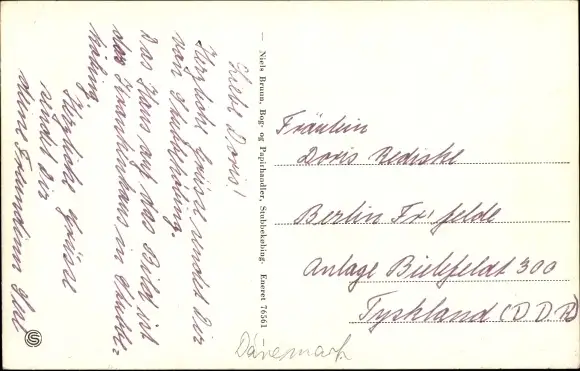 Liebe Doris!
Herzliche Grüsse sendet Dir
von Stubbeköbing.
Das Haus auf das Bild ist
das Krankenhaus in Stubbe-
köbing.
Herzliche Grüsse
sendet Dir
deine Freundinn
— Niels Bruun, Bog- og Papirhandler, Stubbekøbing. Eneret 76561
Fräulein
Doris Rediske
Berlin Fr'felde
Anlage Bielefeldt 300
Tyskland (D.D.R)
Dänemark